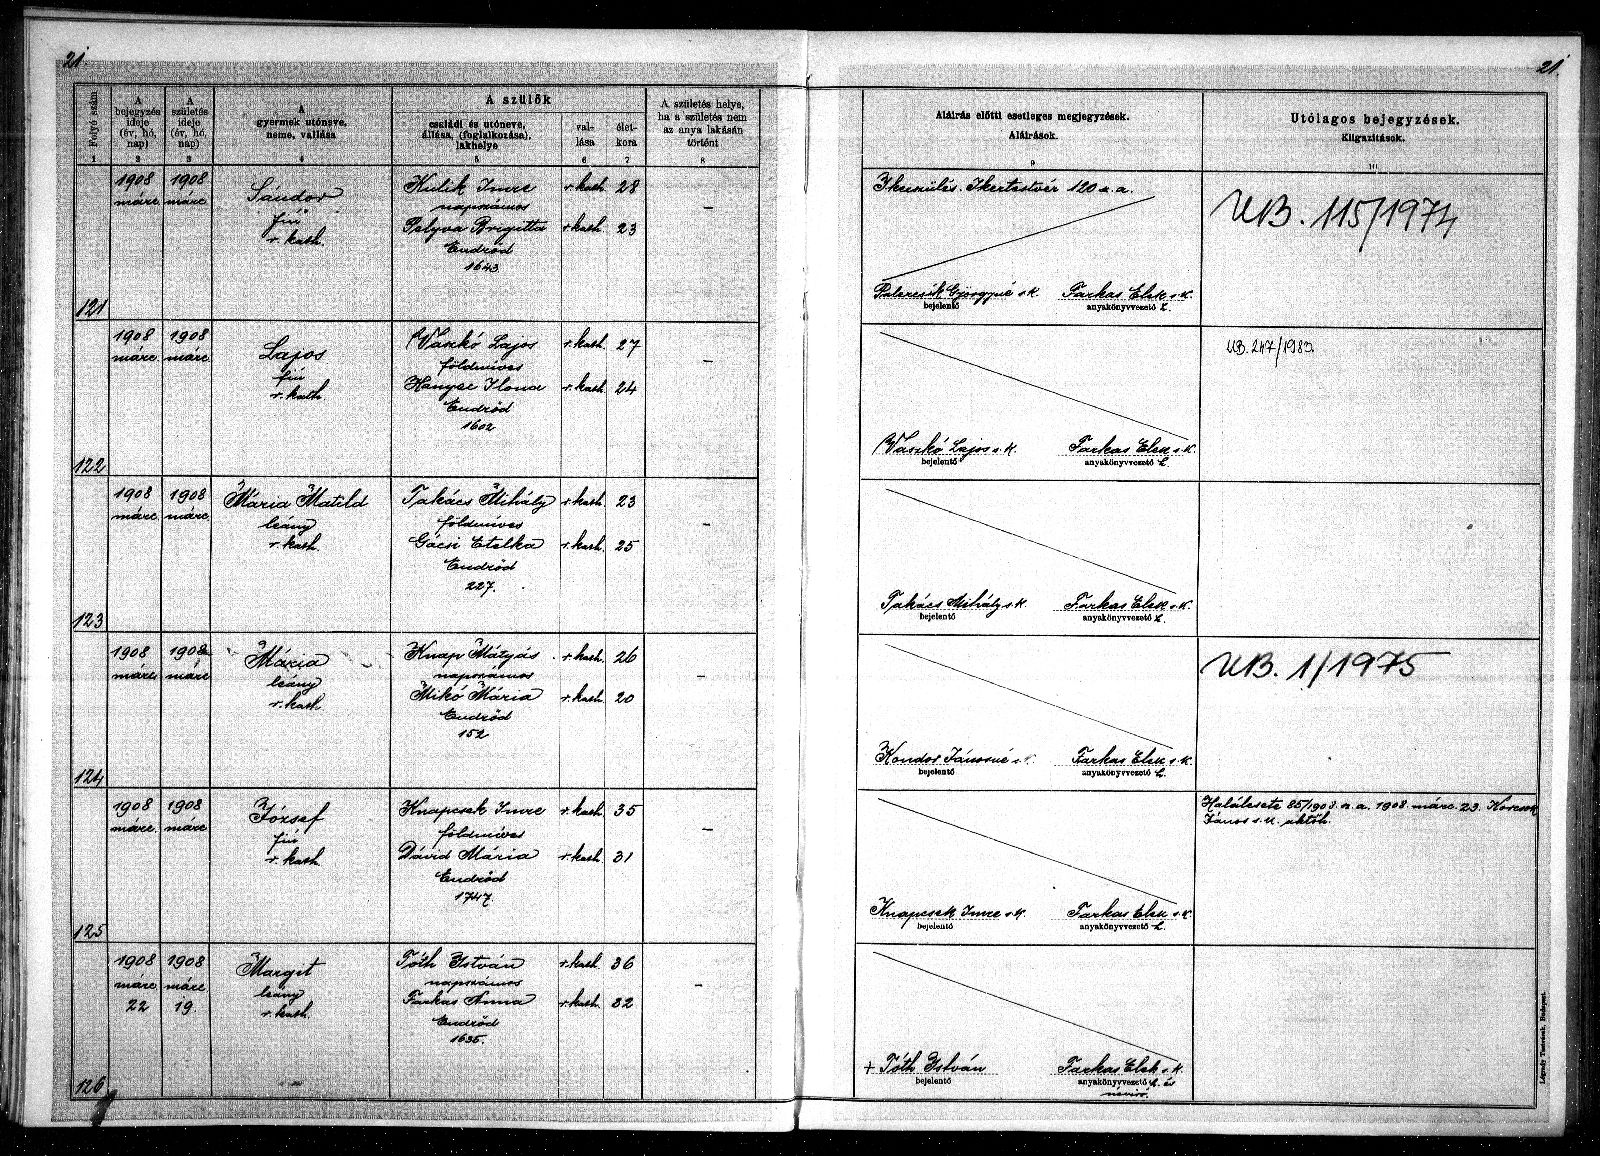 21.
21.
Folyó szám
A bejegyzés ideje (év, hó, nap)
A születés ideje (év, hó, nap)
A gyermek utóneve, neme, vallása
A szülők
családi és utóneve, állása, (foglalkozása), lakhelye
vallása
életkora
A születés helye, ha a születés nem az anya lakásán történt
Aláírás előtti esetleges megjegyzések.
Aláírások.
Utólagos bejegyzések.
Kiigazítások.
1 2 3 4 5 6 7 8 9 10
121
1908 márc.
1908 márc.
Sándor
fiú
r. kath.
Kulik Imre r. kath. 28
napszámos
Brigitta r. kath. 23
Endrőd
1643.
–
Ikerszülés. Ikertestvér 120 a. a.
Györgyné s. k.
bejelentő
Farkas Elek s. k.
anyakönyvvezető h.
UB. 115/1974
122
1908 márc.
1908 márc.
Lajos
fiú
r. kath.
Vaskó Lajos r. kath. 27
földmíves
Hanyecz Ilona r. kath. 24
Endrőd
1602
–
Vaskó Lajos s. k.
bejelentő
Farkas Elek s. k.
anyakönyvvezető h.
UB. 247/1983.
123
1908 márc.
1908 márc.
Mária Matild
leány
r. kath.
Takács Mihály r. kath. 23
földmíves
Gácsi Etelka r. kath. 25
Endrőd
227.
–
Takács Mihály s. k.
bejelentő
Farkas Elek s. k.
anyakönyvvezető h.
124
1908 márc.
1908 márc.
Mária
leány
r. kath.
Knap Mátyás r. kath. 26
napszámos
Mikó Mária r. kath. 20
Endrőd
152
–
Kondor Jánosné s. k.
bejelentő
Farkas Elek s. k.
anyakönyvvezető h.
UB. 1/1975
125
1908 márc.
1908 márc.
József
fiú
r. kath.
Knapcsek Imre r. kath. 35
földmíves
Dávid Mária r. kath. 31
Endrőd
1747.
–
Knapcsek Imre s. k.
bejelentő
Farkas Elek s. k.
anyakönyvvezető h.
Halálesete 85/1908. a. a. 1908 márc. 23.
János s. k.
126
1908 márc. 22
1908 márc. 19.
Margit
leány
r. kath.
Tóth István r. kath. 36
napszámos
Farkas Anna r. kath. 32
Endrőd
1635.
–
+ Tóth István
bejelentő
Farkas Elek s. k.
anyakönyvvezető h. és
névíró.
Légrády Testvérek, Budapest.